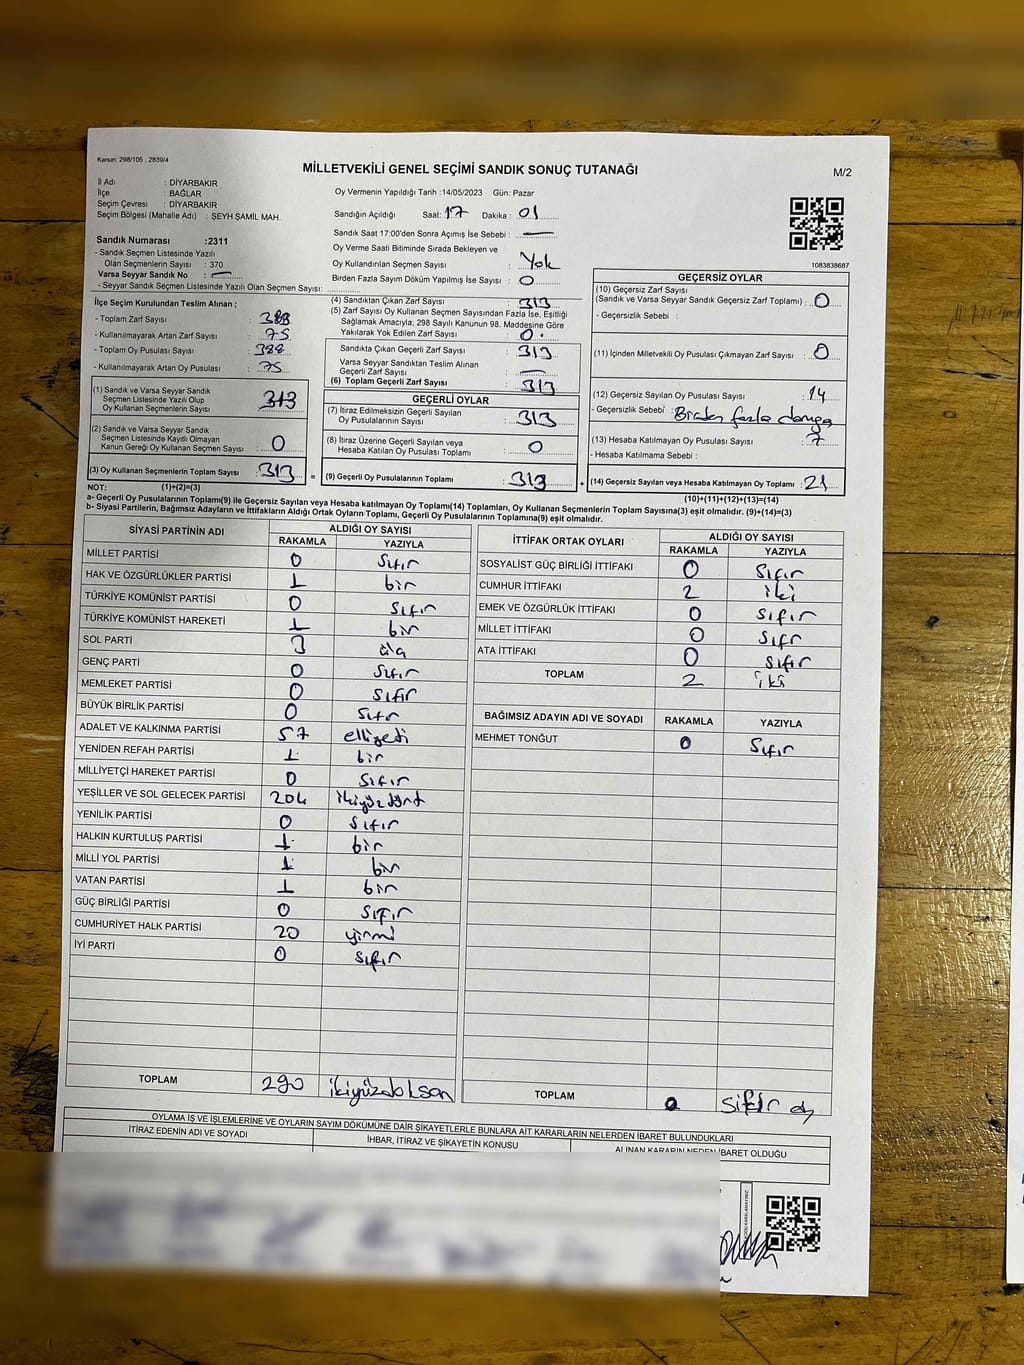 Kanun: 298/105 , 2839/4
MİLLETVEKİLİ GENEL SEÇİMİ SANDIK SONUÇ TUTANAĞI
M/2
İl Adı : DİYARBAKIR
İlçe : BAĞLAR
Seçim Çevresi : DİYARBAKIR
Seçim Bölgesi (Mahalle Adı) : ŞEYH ŞAMİL MAH.
Sandık Numarası :2311
- Sandık Seçmen Listesinde Yazılı
Olan Seçmenlerin Sayısı : 370
Varsa Seyyar Sandık No : —
- Seyyar Sandık Seçmen Listesinde Yazılı Olan Seçmen Sayısı:
Oy Vermenin Yapıldığı Tarih :14/05/2023 Gün: Pazar
Sandığın Açıldığı Saat: 17 Dakika : 01
Sandık Saat 17:00'den Sonra Açımış İse Sebebi : —
Oy Verme Saati Bitiminde Sırada Bekleyen ve
Oy Kullandırılan Seçmen Sayısı : Yok
Birden Fazla Sayım Döküm Yapılmış İse Sayısı : 0
1083838687
İlçe Seçim Kurulundan Teslim Alınan ;
- Toplam Zarf Sayısı : 388
- Kullanılmayarak Artan Zarf Sayısı : 75
- Toplam Oy Pusulası Sayısı : 388
- Kullanılmayarak Artan Oy Pusulası : 75
(1) Sandık ve Varsa Seyyar Sandık
Seçmen Listesinde Yazılı Olup
Oy Kullanan Seçmenlerin Sayısı : 313
(2) Sandık ve Varsa Seyyar Sandık
Seçmen Listesinde Kayıtlı Olmayan
Kanun Gereği Oy Kullanan Seçmen Sayısı : 0
(3) Oy Kullanan Seçmenlerin Toplam Sayısı : 313
(4) Sandıktan Çıkan Zarf Sayısı : 313
(5) Zarf Sayısı Oy Kullanan Seçmen Sayısından Fazla İse, Eşitliği
Sağlamak Amacıyla; 298 Sayılı Kanunun 98. Maddesine Göre
Yakılarak Yok Edilen Zarf Sayısı : 0
Sandıkta Çıkan Geçerli Zarf Sayısı : 313
Varsa Seyyar Sandıktan Teslim Alınan
Geçerli Zarf Sayısı : —
(6) Toplam Geçerli Zarf Sayısı : 313
GEÇERLİ OYLAR
(7) İtiraz Edilmeksizin Geçerli Sayılan
Oy Pusulalarının Sayısı : 313
(8) İtiraz Üzerine Geçerli Sayılan veya
Hesaba Katılan Oy Pusulası Toplamı : 0
= (9) Geçerli Oy Pusulalarının Toplamı : 313
GEÇERSİZ OYLAR
(10) Geçersiz Zarf Sayısı
(Sandık ve Varsa Seyyar Sandık Geçersiz Zarf Toplamı) : 0
- Geçersizlik Sebebi :
(11) İçinden Milletvekili Oy Pusulası Çıkmayan Zarf Sayısı : 0
(12) Geçersiz Sayılan Oy Pusulası Sayısı : 14
- Geçersizlik Sebebi : Birden fazla damga
(13) Hesaba Katılmayan Oy Pusulası Sayısı : 7
- Hesaba Katılmama Sebebi :
+ (14) Geçersiz Sayılan veya Hesaba Katılmayan Oy Toplamı : 21
NOT: (1)+(2)=(3)
(10)+(11)+(12)+(13)=(14)
a- Geçerli Oy Pusulalarının Toplamı(9) ile Geçersiz Sayılan veya Hesaba katılmayan Oy Toplamı(14) Toplamları, Oy Kullanan Seçmenlerin Toplam Sayısına(3) eşit olmalıdır. (9)+(14)=(3)
b- Siyasi Partilerin, Bağımsız Adayların ve İttifakların Aldığı Ortak Oyların Toplamı, Geçerli Oy Pusulalarının Toplamına(9) eşit olmalıdır.
SİYASİ PARTİNİN ADI ALDIĞI OY SAYISI
RAKAMLA YAZIYLA
MİLLET PARTİSİ 0 sıfır
HAK VE ÖZGÜRLÜKLER PARTİSİ 1 bir
TÜRKİYE KOMÜNİST PARTİSİ 0 sıfır
TÜRKİYE KOMÜNİST HAREKETİ 1 bir
SOL PARTİ 3
GENÇ PARTİ 0 sıfır
MEMLEKET PARTİSİ 0 sıfır
BÜYÜK BİRLİK PARTİSİ 0 sıfır
ADALET VE KALKINMA PARTİSİ 57 elliyedi
YENİDEN REFAH PARTİSİ 1 bir
MİLLİYETÇİ HAREKET PARTİSİ 0 sıfır
YEŞİLLER VE SOL GELECEK PARTİSİ 204 ikiyüzdört
YENİLİK PARTİSİ 0 sıfır
HALKIN KURTULUŞ PARTİSİ 1 bir
MİLLİ YOL PARTİSİ 1 bir
VATAN PARTİSİ 1 bir
GÜÇ BİRLİĞİ PARTİSİ 0 sıfır
CUMHURİYET HALK PARTİSİ 20 yirmi
İYİ PARTİ 0 sıfır
TOPLAM 290 ikiyüzdoksan
İTTİFAK ORTAK OYLARI ALDIĞI OY SAYISI
RAKAMLA YAZIYLA
SOSYALİST GÜÇ BİRLİĞİ İTTİFAKI 0 sıfır
CUMHUR İTTİFAKI 2 iki
EMEK VE ÖZGÜRLÜK İTTİFAKI 0 sıfır
MİLLET İTTİFAKI 0 sıfr
ATA İTTİFAKI 0 sıfır
TOPLAM 2 iki
BAĞIMSIZ ADAYIN ADI VE SOYADI RAKAMLA YAZIYLA
MEHMET TONĞUT 0 sıfır
TOPLAM 0 sıfır oy
OYLAMA İŞ VE İŞLEMLERİNE VE OYLARIN SAYIM DÖKÜMÜNE DAİR ŞİKAYETLERLE BUNLARA AİT KARARLARIN NELERDEN İBARET BULUNDUKLARI
İTİRAZ EDENİN ADI VE SOYADI İHBAR, İTİRAZ VE ŞİKAYETİN KONUSU ALINAN KARARIN NEDEN İBARET OLDUĞU